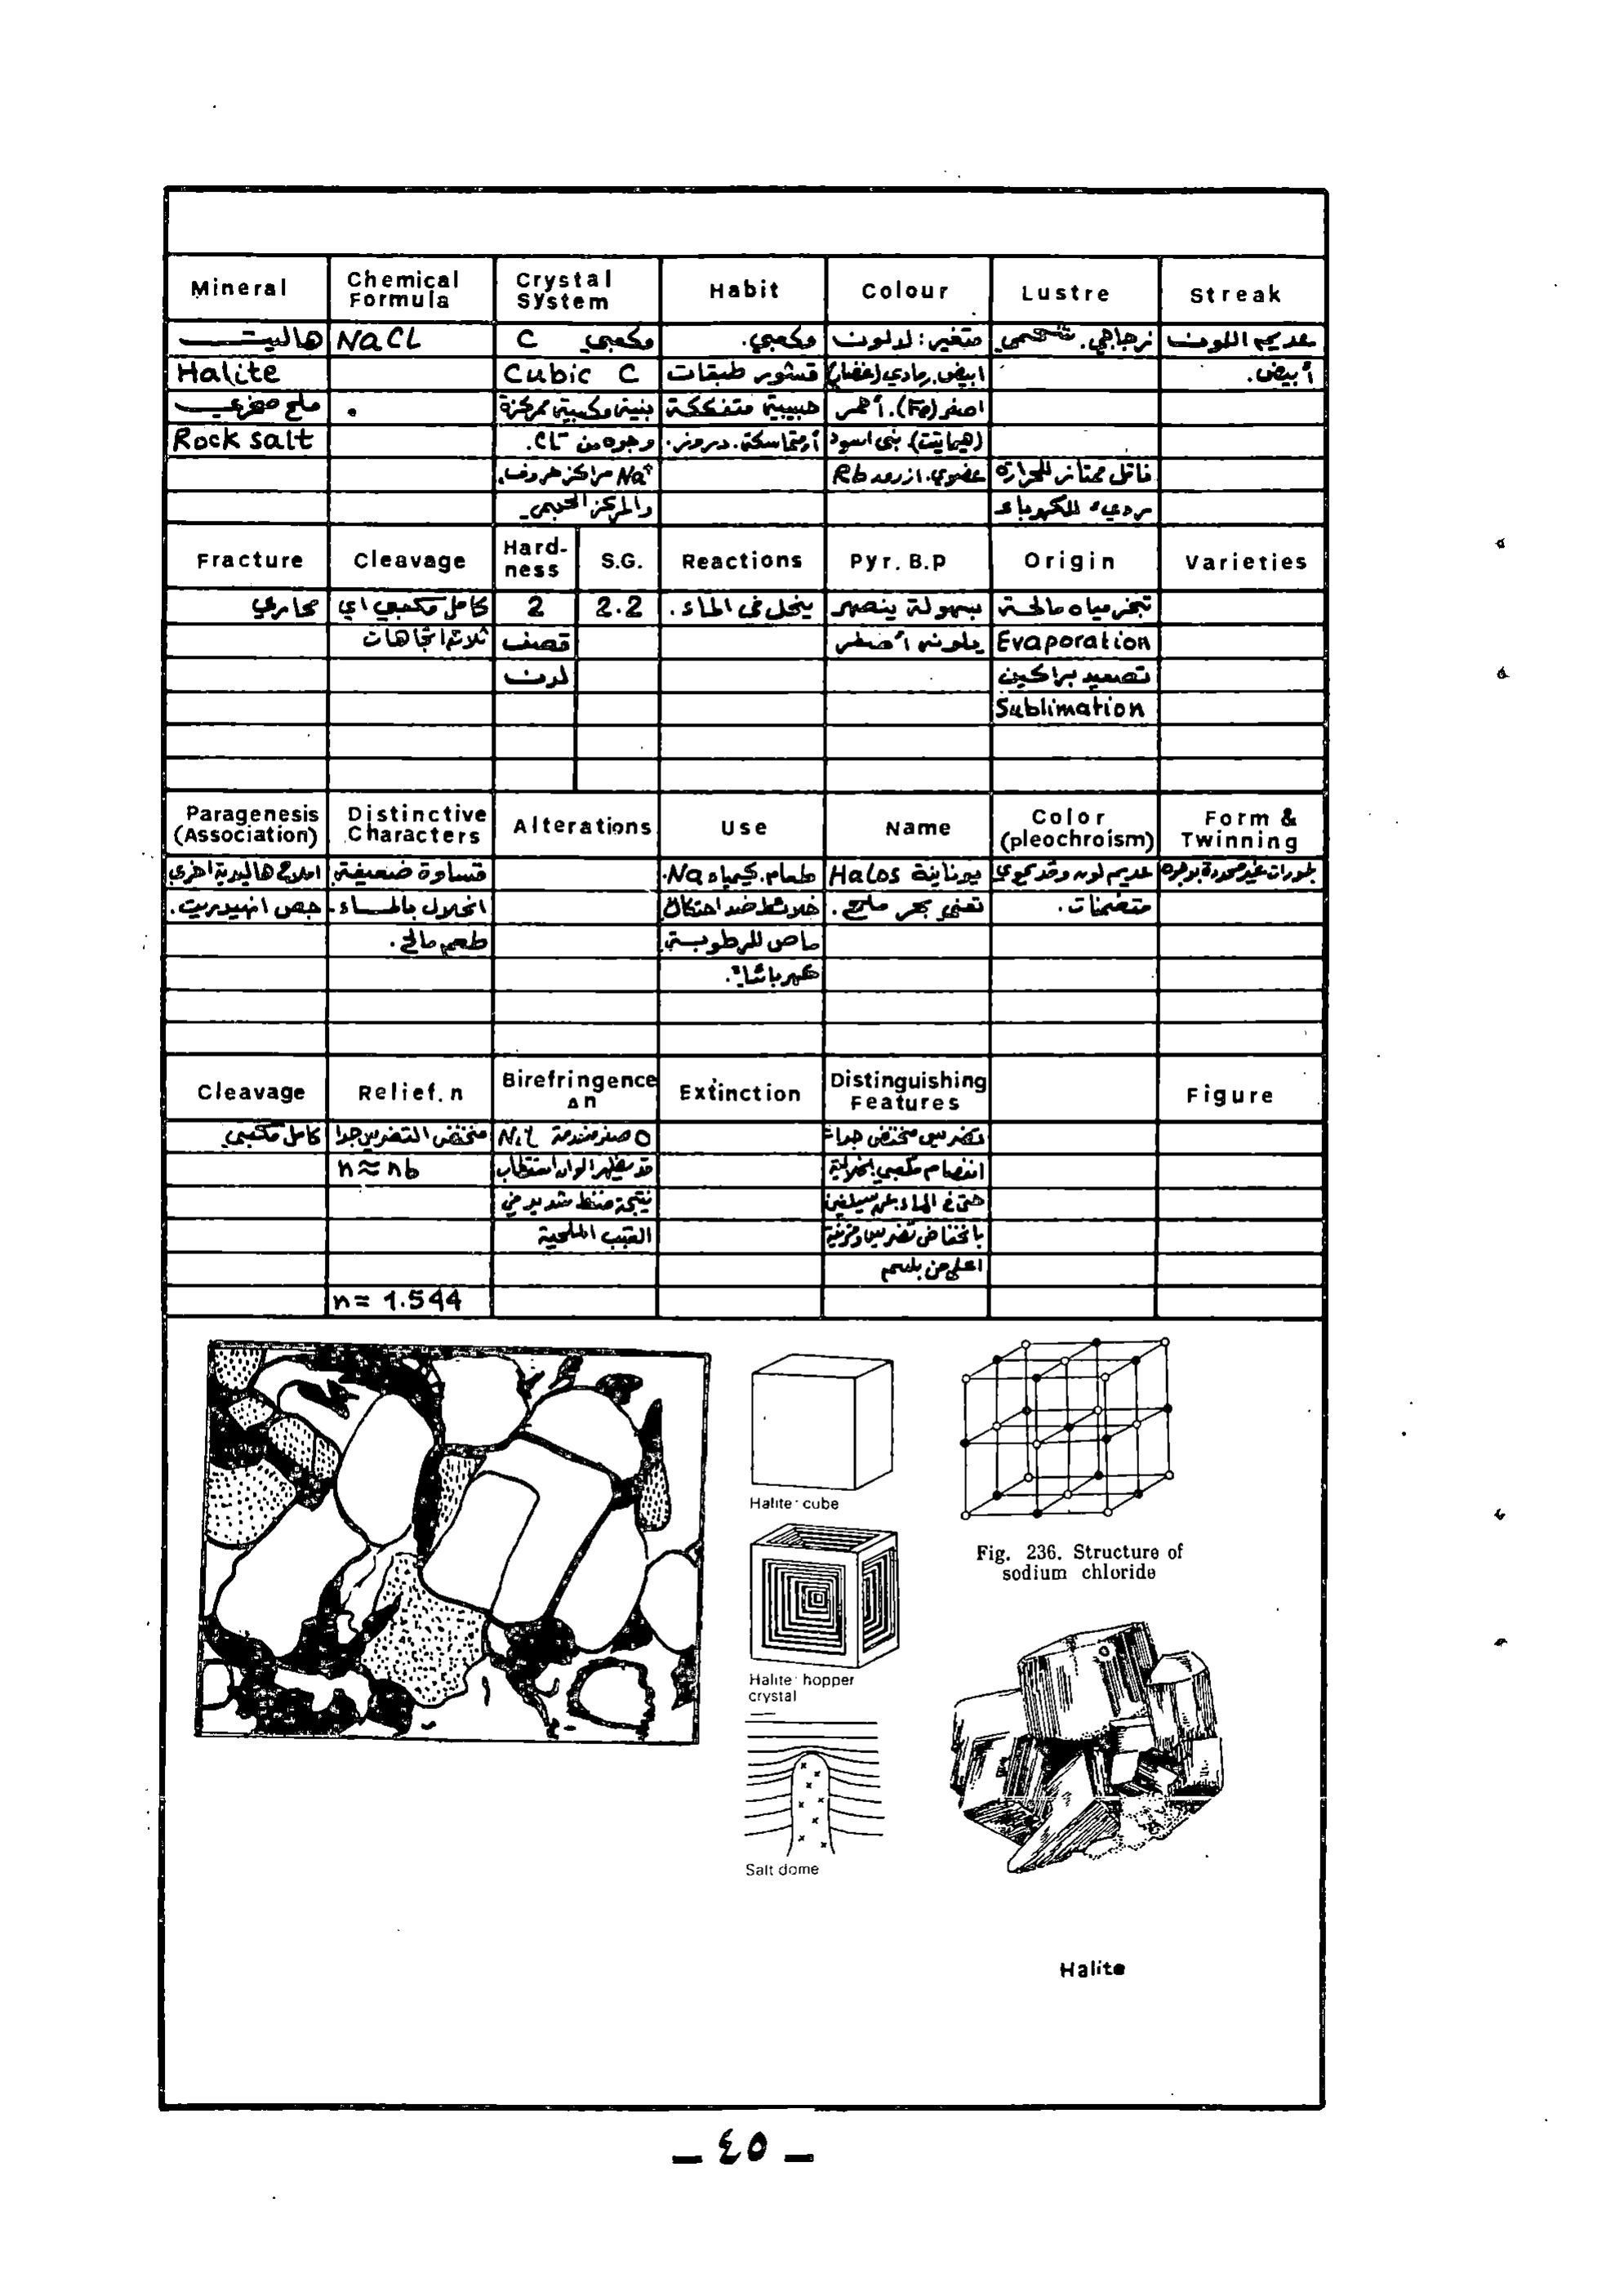 Mineral Chemical Formula Crystal System Habit Colour Lustre Streak
هاليت NaCL مكعبي C مكعبي. متغير: لا لون زجاجي. شحمي عديم اللون
Halite Cubic C قشور طبقات ابيض. رمادي (غضار) أبيض.
ملح صخري بنية مكعبية ممركزة حبيبية متفككة اصفر (Fe). أحمر
Rock salt وجوه من CL⁻. أو متماسكة. دروز. (هيماتيت) بني اسود
Na⁺ مراكز حروف. عضوي. ازرق Rb ناقل ممتاز للحرارة
والمركز الحجمي رديء للكهرباء
Fracture Cleavage Hard-ness S.G. Reactions Pyr. B.p Origin Varieties
محاري كامل مكعبي اي 2 2.2 ينحل في الماء. بسهولة ينصهر تبخر مياه مالحة
ثلاثة اتجاهات قصف يلونه أصفر Evaporation
لدن تصعيد براكين
Sublimation
Paragenesis (Association) Distinctive Characters Alterations Use Name Color (pleochroism) Form & Twinning
املاح هاليدية اخرى قساوة ضعيفة. طعام. كيمياء Na. Halos يونانية عديم لون وقد يحوي بلورات غير محددة بوجوه
جص انهيدريت. انحلال بالماء. خلائط ضد احتكاك تعني بحر ملح. متضمنات.
طعم مالح. ماص للرطوبة
كهربائياً.
Cleavage Relief. n Birefringence Δn Extinction Distinguishing Features Figure
كامل مكعبي منخفض التضريس جدا 0 صفر منعدمة NiL تضريس منخفض جداً
n≈nb قد يظهر الوان استقطاب انفصام مكعبي انحلالية
نتيجة ضغط شديد في حتى في الماء عن سيلفين
القبب الملحية بانخفاض تضريس وقرنية
اعلى من بلسم
n= 1.544
Halite: cube
Fig. 236. Structure of
sodium chloride
Halite: hopper
crystal
Salt dome
Halite
– ٤٥ –